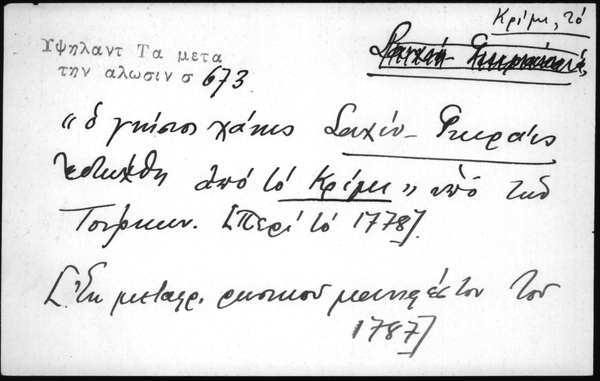 Κρίμι, τό
Σαχίν Γκεράης
Υψηλαντ Τα μετα
την αλωσιν σ 673
"ὁ γνήσιος χάνης Σαχίν-Γκεράις
ἐδιώχθη ἀπό τό Κρίμι" ὑπό των
Τούρκων. [Περί τό 1778].
[Ἐκ μεταφρ. ρωσικοῦ μανιφέστου του
1787]